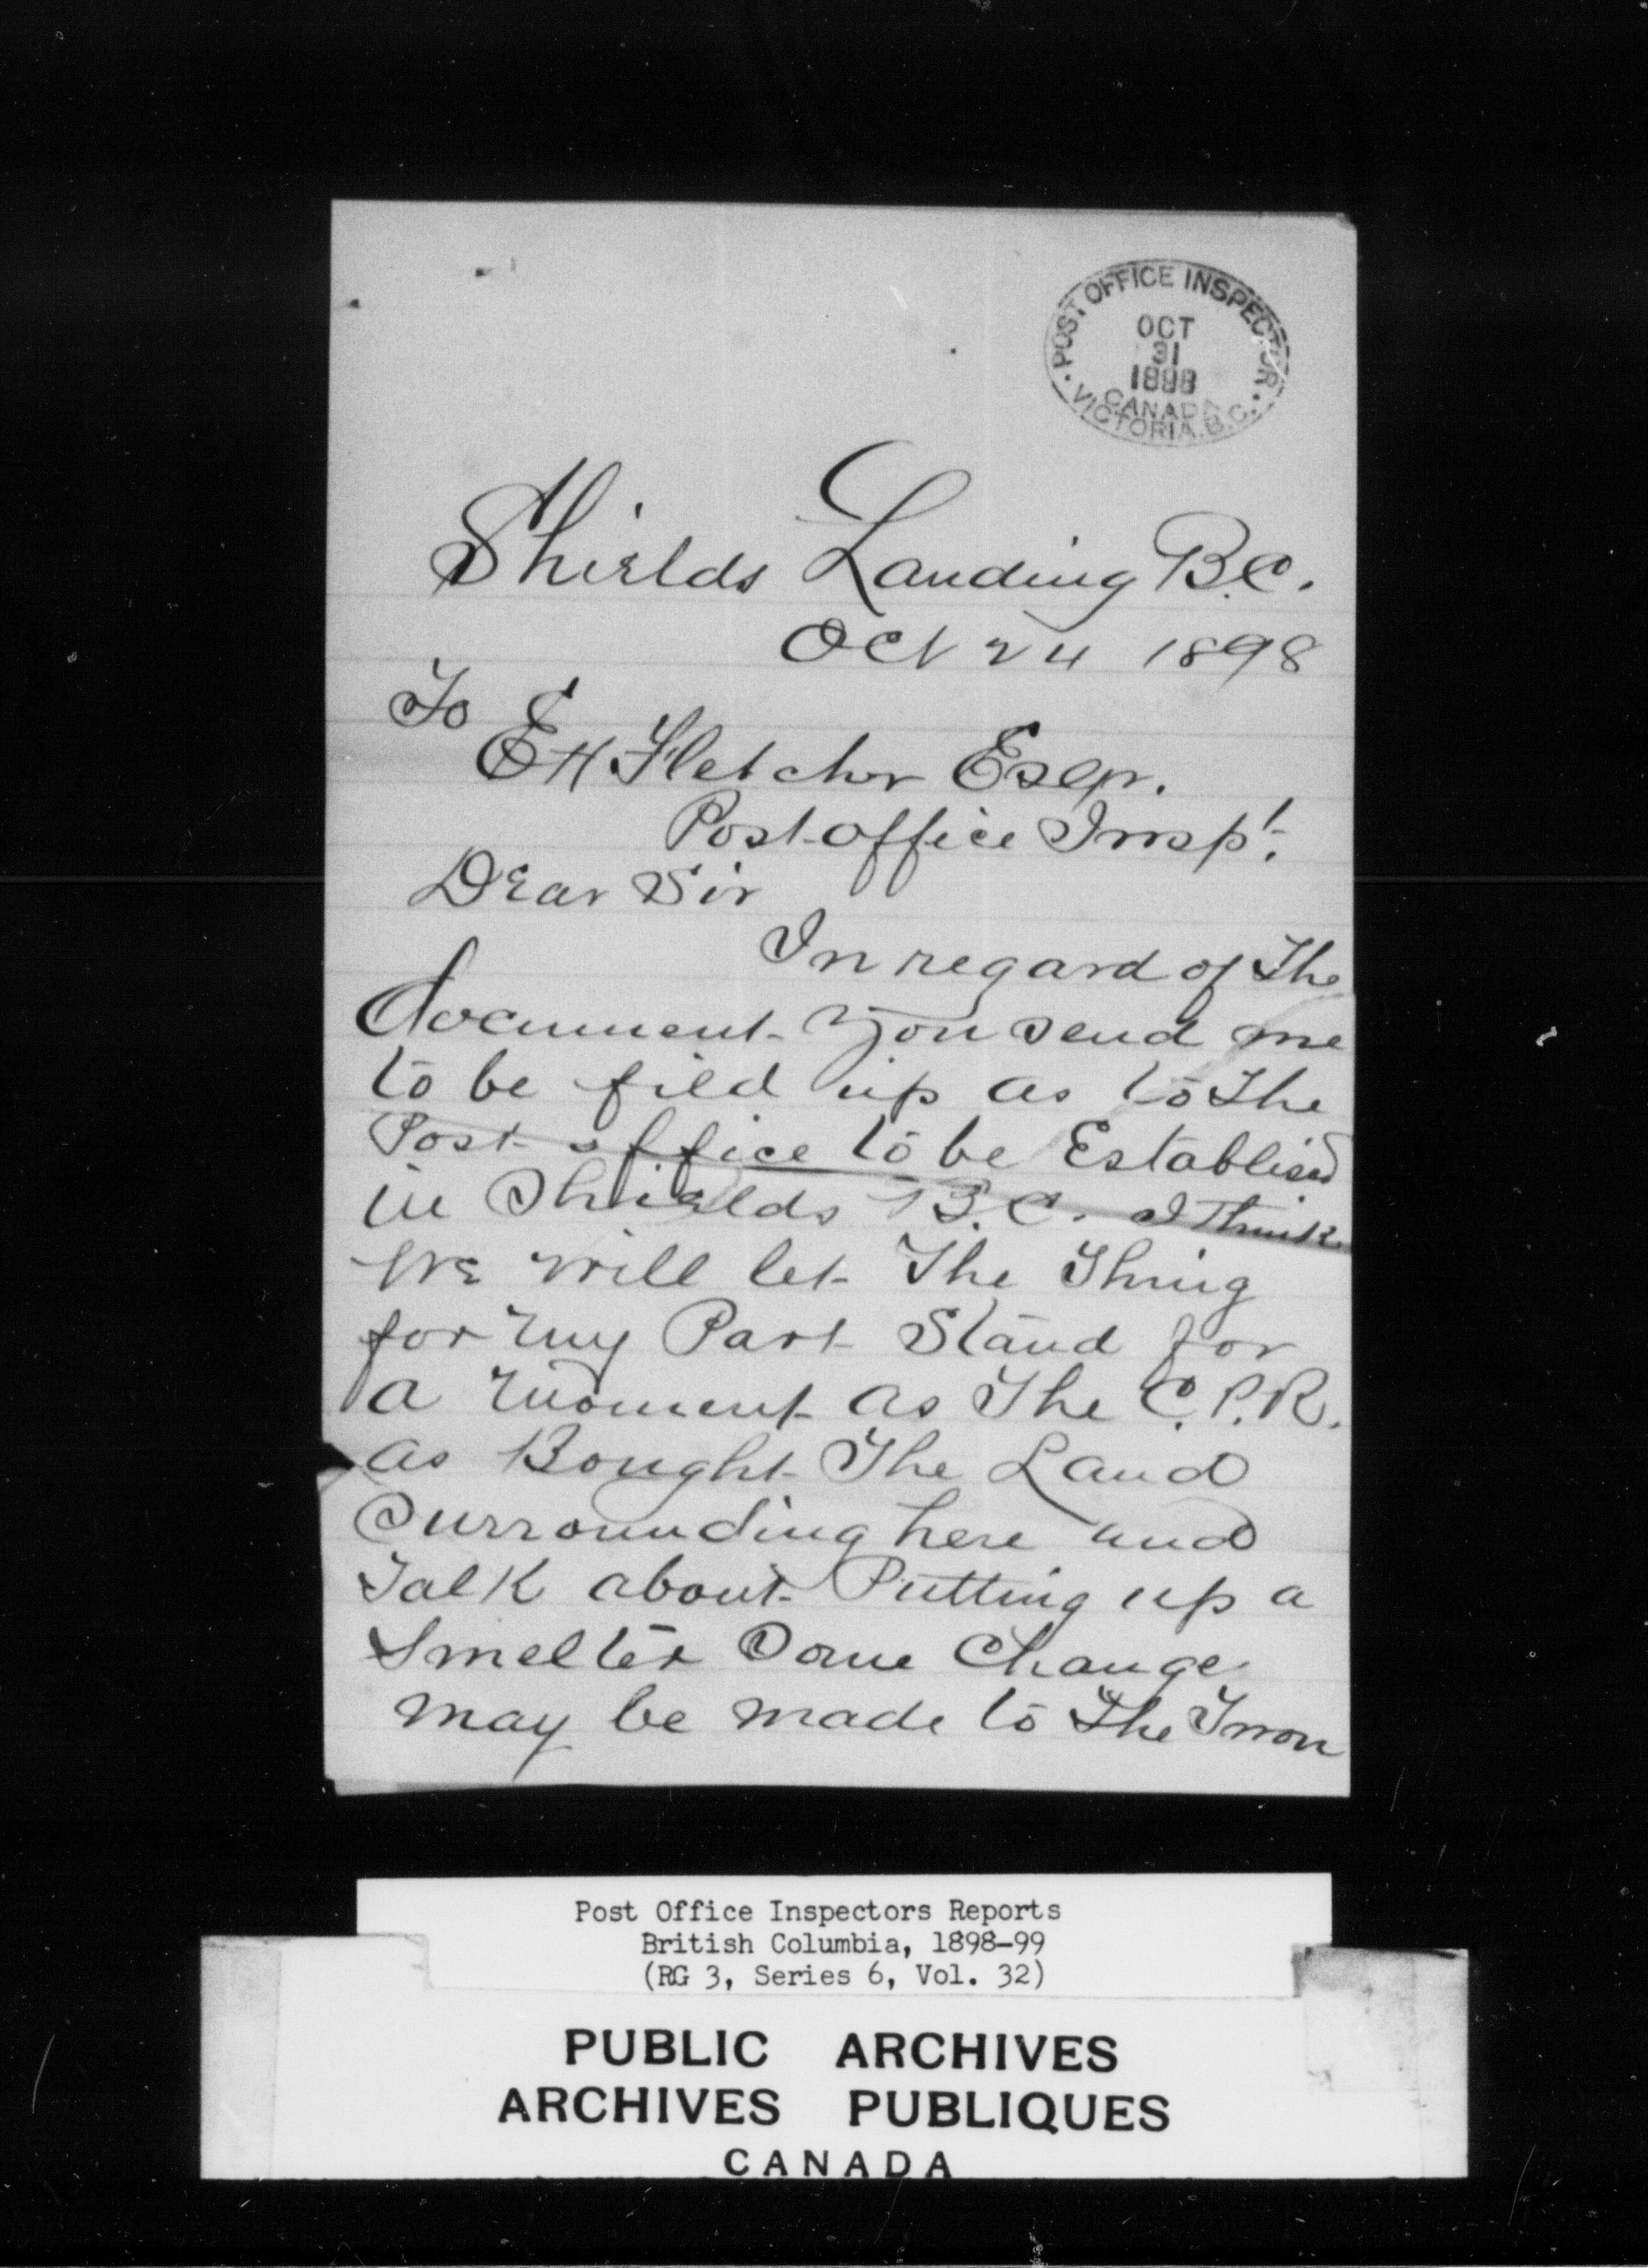 POST OFFICE INSPECTOR
OCT
31
1898
CANADA
VICTORIA. B.C.
Shields Landing B.C.
Oct 24 1898
To
E H Fletcher Esqr.
Post office Insp!
Dear Sir
In regard of the
document you send me
to be fild up as to the
Post office to be Establised
in Shields B.C. I think
We will let The Thing
for my Part Stand for
a moment as The C.P.R.
as Bought The Land
Surrounding here and
Talk about Putting up a
Smelter Some Change
may be made to the
Post Office Inspectors Reports
British Columbia, 1898-99
(RG 3, Series 6, Vol. 32)
PUBLIC ARCHIVES
ARCHIVES PUBLIQUES
CANADA